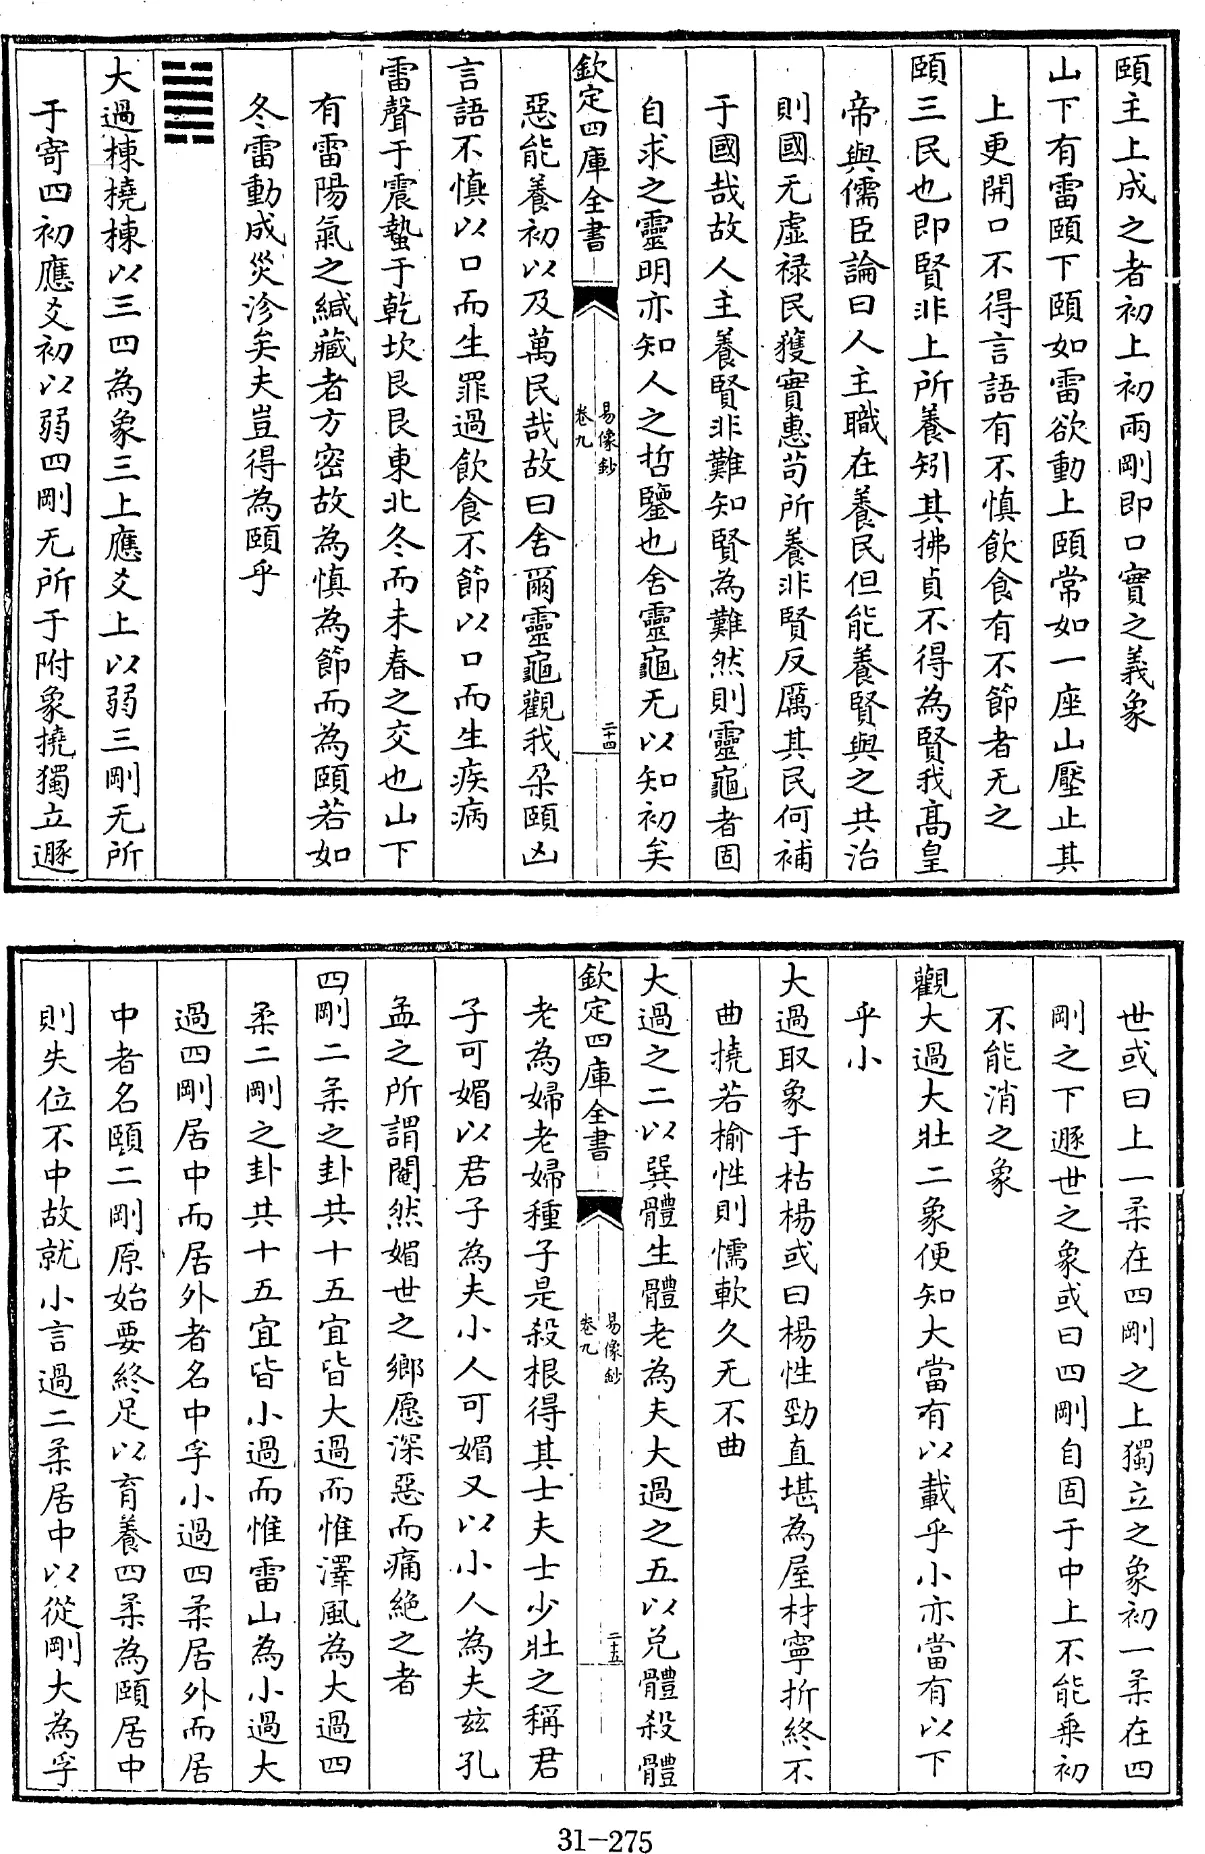 頤主上成之者初上初兩剛即口實之義象
山下有雷頤下頤如雷欲動上頤常如一座山壓止其
上更開口不得言語有不慎飲食有不節者无之
頤三民也即賢非上所養矧其拂貞不得為賢我髙皇
帝與儒臣論曰人主職在養民但能養賢與之共治
則國无虛祿民獲實惠苟所養非賢反厲其民何補
于國哉故人主養賢非難知賢為難然則靈龜者固
自求之靈明亦知人之哲鑒也舍靈龜无以知初矣
欽定四庫全書
易像鈔
卷九
二十四
惡能養初以及萬民哉故曰舍爾靈龜觀我朶頤凶
言語不慎以口而生罪過飲食不節以口而生疾病
雷聲于震蟄于乾坎艮艮東北冬而未春之交也山下
有雷陽氣之緘藏者方密故為慎為節而為頤若如
冬雷動成災沴矣夫豈得為頤乎
䷛
大過棟橈棟以三四為象三上應爻上以弱三剛无所
于寄四初應爻初以弱四剛无所于附象撓獨立遯
世或曰上一柔在四剛之上獨立之象初一柔在四
剛之下遯世之象或曰四剛自固于中上不能乗初
不能消之象
觀大過大壯二象便知大當有以載乎小亦當有以下
乎小
大過取象于枯楊或曰楊性勁直堪為屋材寧折終不
曲撓若榆性則懦軟久无不曲
大過之二以巽體生體老為夫大過之五以兌體殺體
欽定四庫全書
易像鈔
卷九
二十五
老為婦老婦種子是殺根得其士夫士少壯之稱君
子可媚以君子為夫小人可媚又以小人為夫兹孔
孟之所謂閹然媚世之鄉愿深惡而痛絶之者
四剛二柔之卦共十五宜皆大過而惟澤風為大過四
柔二剛之卦共十五宜皆小過而惟雷山為小過大
過四剛居中而居外者名中孚小過四柔居外而居
中者名頤二剛原始要終足以育養四柔為頤居中
則失位不中故就小言過二柔居中以從剛大為孚
31-275